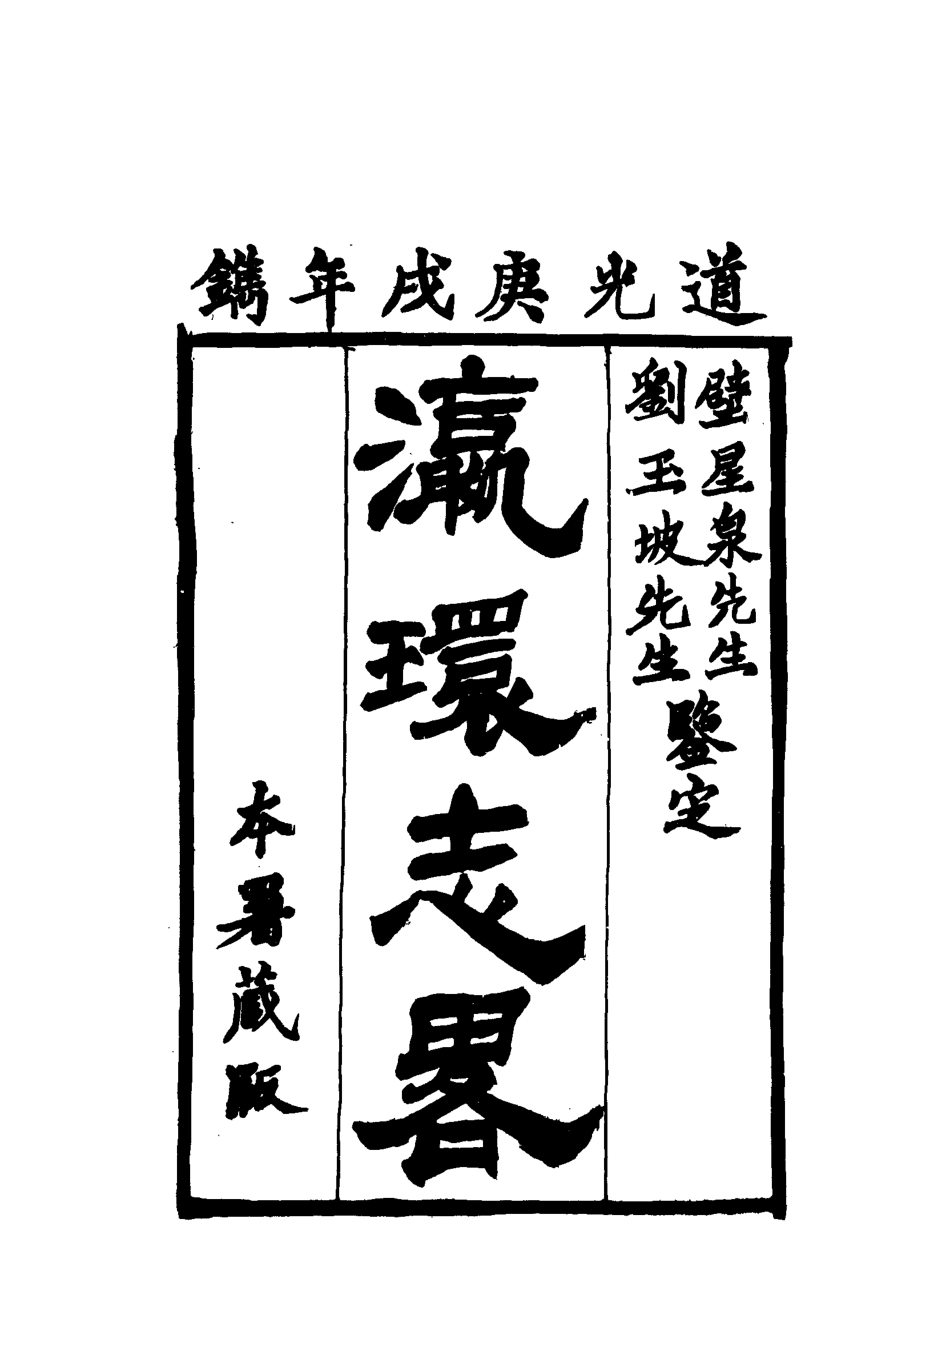 道光庚戌年鐫
壁星泉先生
劉玉坡先生
鑒定
瀛環志畧
本署蔵版